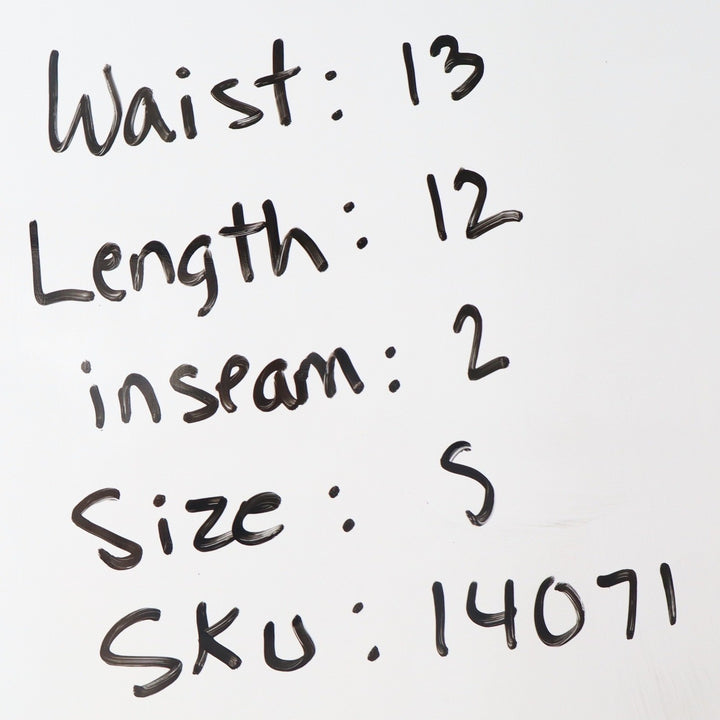 Waist: 13
Length: 12
inseam: 2
Size: S
SKU: 14071